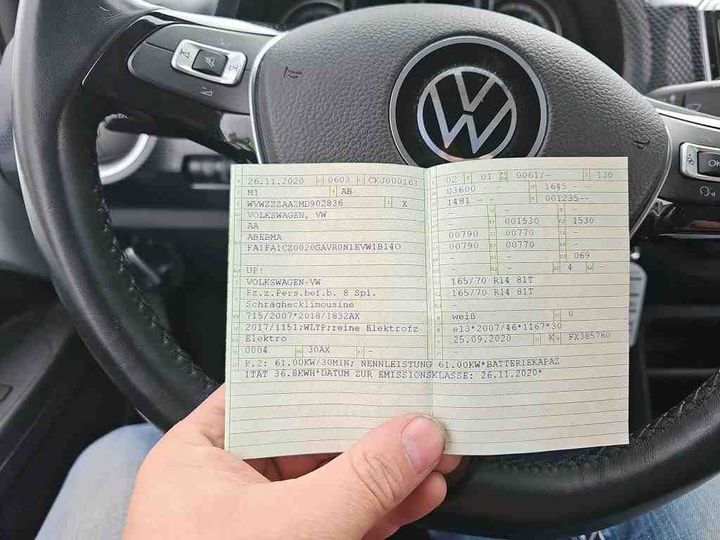 26.11.2020 0603 CKJ000162
M1 AB
WVWZZZAAZMD902836 X
VOLKSWAGEN, VW
AA
ABEBMA
FA1FA1CZ0020GAVR0N1EVW1B14O
UP!
VOLKSWAGEN-VW
Fz.z.Pers.bef.b. 8 Spl.
Schräghecklimousine
715/2007*2018/1832AX
2017/1151;WLTP;reine Elektrofz
Elektro
0004 30AX -
02 01 0061/- 130
03600 1645 --
1481 -- 001235--
- 001530 1530
00790 00770 --
00790 00770 --
- - - 069
- - 4 -
165/70 R14 81T
165/70 R14 81T
weiß 0
e13*2007/46*1167*30
25.09.2020 K FX385760
P.2: 61.00KW/30MIN; NENNLEISTUNG 61.00KW*BATTERIEKAPAZ
ITÄT 36.8KWH*DATUM ZUR EMISSIONSKLASSE: 26.11.2020*
OK